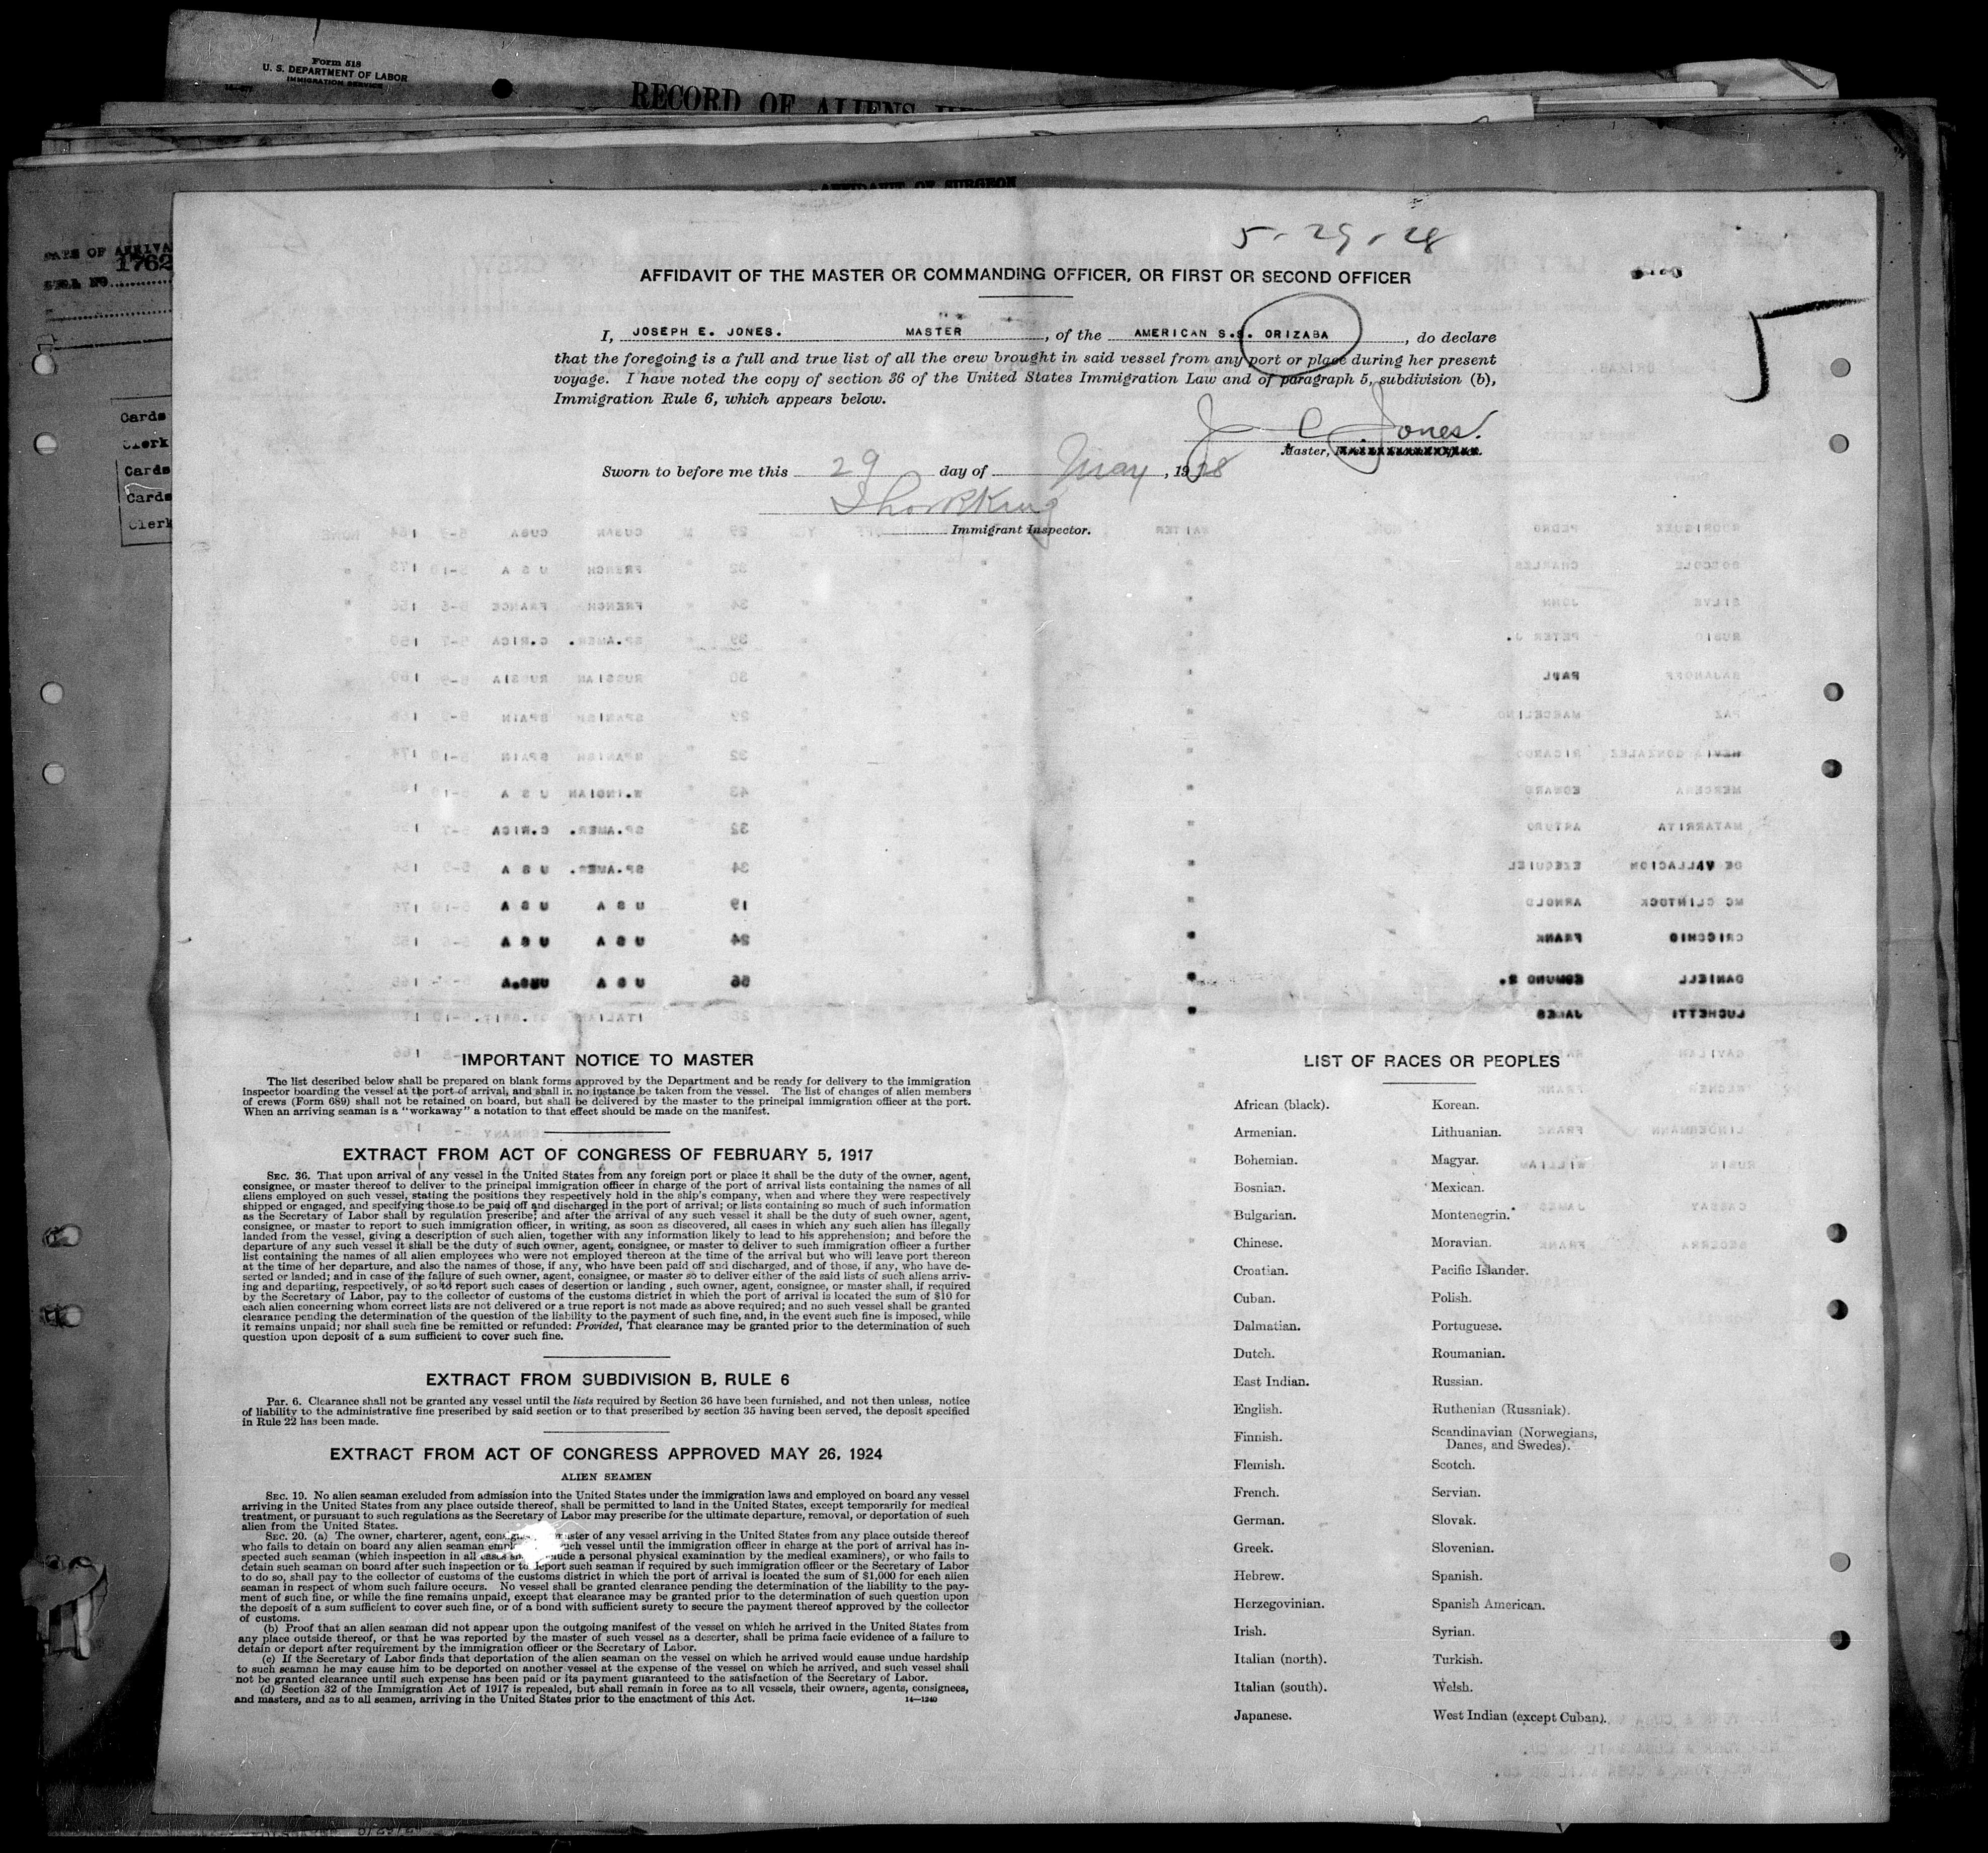 Form 518
U. S. DEPARTMENT OF LABOR
IMMIGRATION SERVICE
RECORD OF ALIENS
AFFIDAVIT OF SURGEON
1762
Cards
Clerk
Cards
Cards
Clerk
5-29-28
5
AFFIDAVIT OF THE MASTER OR COMMANDING OFFICER, OR FIRST OR SECOND OFFICER
I, JOSEPH E. JONES. MASTER, of the AMERICAN S.S. ORIZABA, do declare
that the foregoing is a full and true list of all the crew brought in said vessel from any port or place during her present
voyage. I have noted the copy of section 36 of the United States Immigration Law and of paragraph 5, subdivision (b),
Immigration Rule 6, which appears below.
J E Jones.
Master,
Sworn to before me this 29 day of May, 1928
Immigrant Inspector.
IMPORTANT NOTICE TO MASTER
The list described below shall be prepared on blank forms approved by the Department and be ready for delivery to the immigration
inspector boarding the vessel at the port of arrival, and shall in no instance be taken from the vessel. The list of changes of alien members
of crews (Form 689) shall not be retained on board, but shall be delivered by the master to the principal immigration officer at the port.
When an arriving seaman is a "workaway" a notation to that effect should be made on the manifest.
EXTRACT FROM ACT OF CONGRESS OF FEBRUARY 5, 1917
SEC. 36. That upon arrival of any vessel in the United States from any foreign port or place it shall be the duty of the owner, agent,
consignee, or master thereof to deliver to the principal immigration officer in charge of the port of arrival lists containing the names of all
aliens employed on such vessel, stating the positions they respectively hold in the ship's company, when and where they were respectively
shipped or engaged, and specifying those to be paid off and discharged in the port of arrival; or lists containing so much of such information
as the Secretary of Labor shall by regulation prescribe; and after the arrival of any such vessel it shall be the duty of such owner, agent,
consignee, or master to report to such immigration officer, in writing, as soon as discovered, all cases in which any such alien has illegally
landed from the vessel, giving a description of such alien, together with any information likely to lead to his apprehension; and before the
departure of any such vessel it shall be the duty of such owner, agent, consignee, or master to deliver to such immigration officer a further
list containing the names of all alien employees who were not employed thereon at the time of the arrival but who will leave port thereon
at the time of her departure, and also the names of those, if any, who have been paid off and discharged, and of those, if any, who have de-
serted or landed; and in case of the failure of such owner, agent, consignee, or master so to deliver either of the said lists of such aliens arriv-
ing and departing, respectively, or so to report such cases of desertion or landing, such owner, agent, consignee, or master shall, if required
by the Secretary of Labor, pay to the collector of customs of the customs district in which the port of arrival is located the sum of $10 for
each alien concerning whom correct lists are not delivered or a true report is not made as above required; and no such vessel shall be granted
clearance pending the determination of the question of the liability to the payment of such fine, and, in the event such fine is imposed, while
it remains unpaid; nor shall such fine be remitted or refunded: Provided, That clearance may be granted prior to the determination of such
question upon deposit of a sum sufficient to cover such fine.
EXTRACT FROM SUBDIVISION B, RULE 6
Par. 6. Clearance shall not be granted any vessel until the lists required by Section 36 have been furnished, and not then unless, notice
of liability to the administrative fine prescribed by said section or to that prescribed by section 35 having been served, the deposit specified
in Rule 22 has been made.
EXTRACT FROM ACT OF CONGRESS APPROVED MAY 26, 1924
ALIEN SEAMEN
SEC. 19. No alien seaman excluded from admission into the United States under the immigration laws and employed on board any vessel
arriving in the United States from any place outside thereof, shall be permitted to land in the United States, except temporarily for medical
treatment, or pursuant to such regulations as the Secretary of Labor may prescribe for the ultimate departure, removal, or deportation of such
alien from the United States.
SEC. 20. (a) The owner, charterer, agent, master of any vessel arriving in the United States from any place outside thereof
who fails to detain on board any alien seaman such vessel until the immigration officer in charge at the port of arrival has in-
spected such seaman (which inspection in all cases a personal physical examination by the medical examiners), or who fails to
detain such seaman on board after such inspection or to deport such seaman if required by such immigration officer or the Secretary of Labor
to do so, shall pay to the collector of customs of the customs district in which the port of arrival is located the sum of $1,000 for each alien
seaman in respect of whom such failure occurs. No vessel shall be granted clearance pending the determination of the liability to the pay-
ment of such fine, or while the fine remains unpaid, except that clearance may be granted prior to the determination of such question upon
the deposit of a sum sufficient to cover such fine, or of a bond with sufficient surety to secure the payment thereof approved by the collector
of customs.
(b) Proof that an alien seaman did not appear upon the outgoing manifest of the vessel on which he arrived in the United States from
any place outside thereof, or that he was reported by the master of such vessel as a deserter, shall be prima facie evidence of a failure to
detain or deport after requirement by the immigration officer or the Secretary of Labor.
(c) If the Secretary of Labor finds that deportation of the alien seaman on the vessel on which he arrived would cause undue hardship
to such seaman he may cause him to be deported on another vessel at the expense of the vessel on which he arrived, and such vessel shall
not be granted clearance until such expense has been paid or its payment guaranteed to the satisfaction of the Secretary of Labor.
(d) Section 32 of the Immigration Act of 1917 is repealed, but shall remain in force as to all vessels, their owners, agents, consignees,
and masters, and as to all seamen, arriving in the United States prior to the enactment of this Act.
14—1240
LIST OF RACES OR PEOPLES
African (black). Korean.
Armenian. Lithuanian.
Bohemian. Magyar.
Bosnian. Mexican.
Bulgarian. Montenegrin.
Chinese. Moravian.
Croatian. Pacific Islander.
Cuban. Polish.
Dalmatian. Portuguese.
Dutch. Roumanian.
East Indian. Russian.
English. Ruthenian (Russniak).
Finnish. Scandinavian (Norwegians,
Danes, and Swedes).
Flemish. Scotch.
French. Servian.
German. Slovak.
Greek. Slovenian.
Hebrew. Spanish.
Herzegovinian. Spanish American.
Irish. Syrian.
Italian (north). Turkish.
Italian (south). Welsh.
Japanese. West Indian (except Cuban).